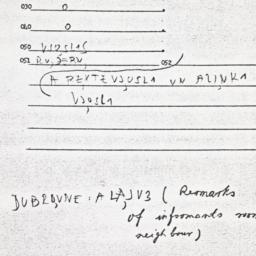 030 0
040 0
050 VJOSLAS
051 R.V, S=P.V, 052
A PEKTEVJOSLA UN AZINKA
VJOSLA
DUBROVNE: ALAJV3 (Remarks
of informants
neighbour)